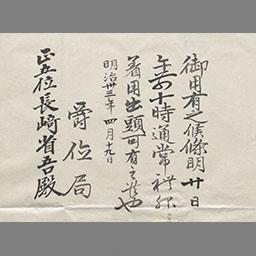 御用有之候條明廿日
午前十時通常礼服
着用出頭可有之候也
明治卅三年四月十九日
爵位局
正五位長崎省吾殿